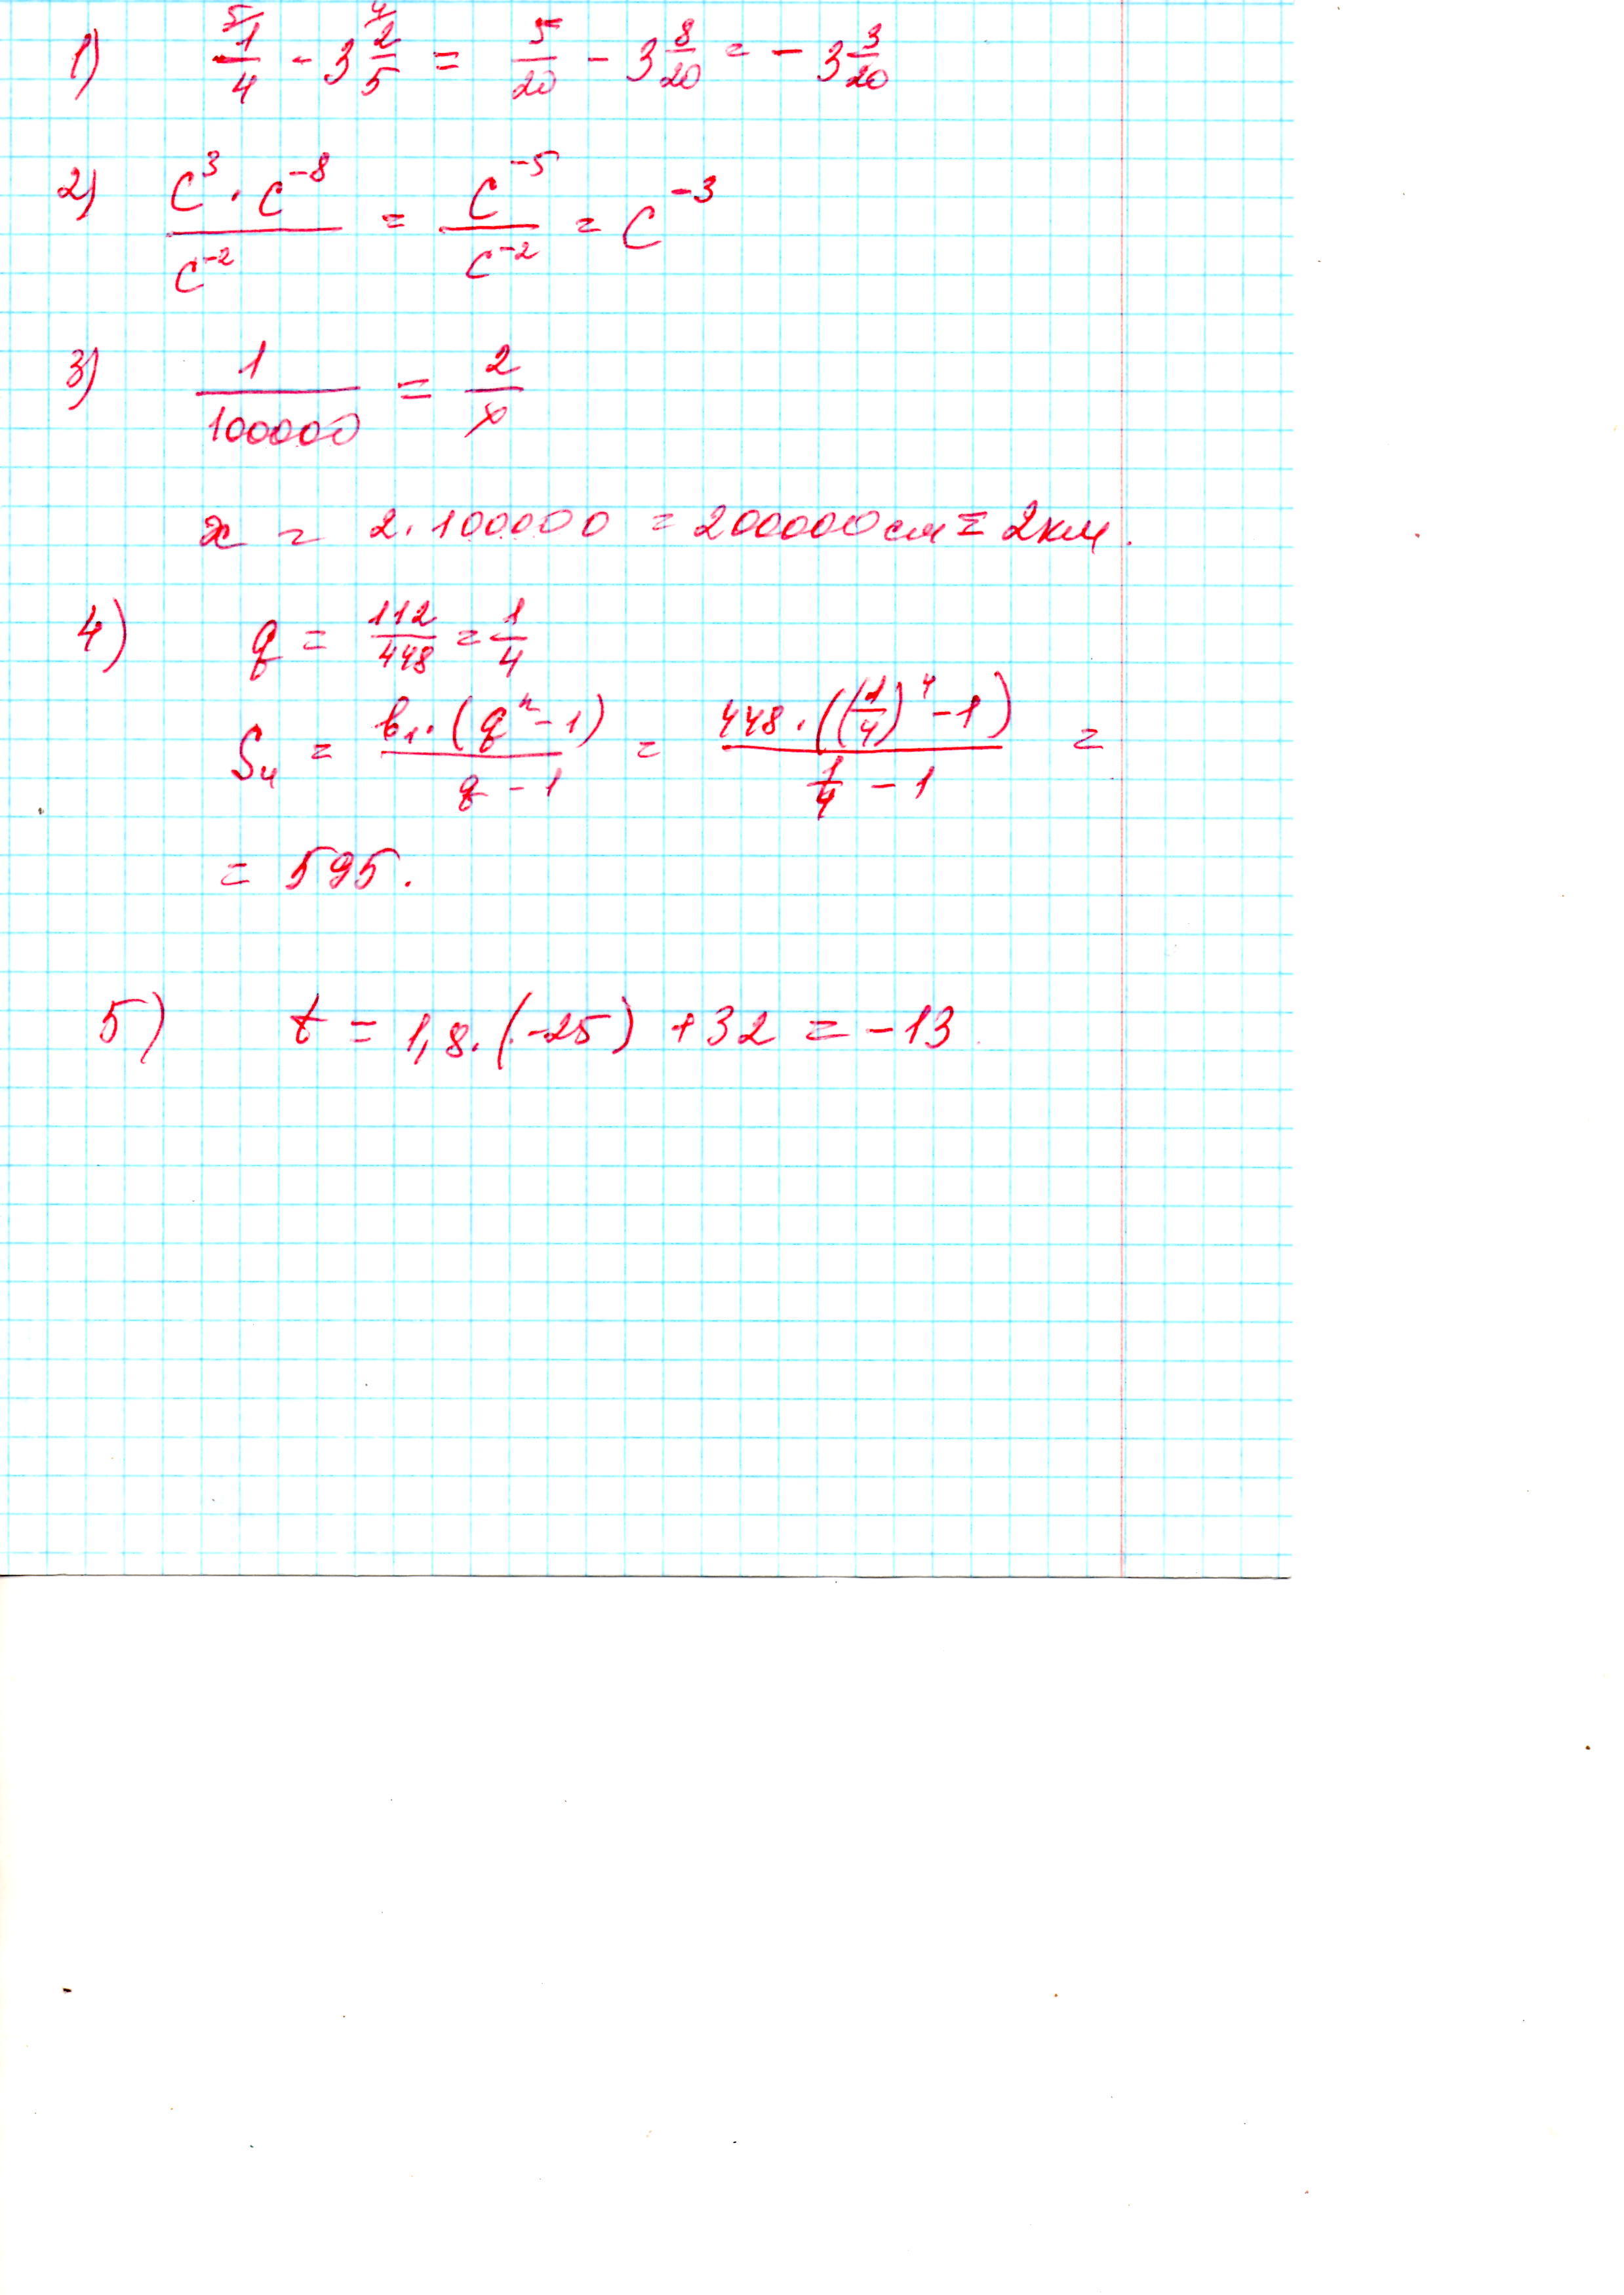 1) 5/ 1/4 - 3 4/ 2/5 = 5/20 - 3 8/20 = - 3 3/20
2) (c³ · c⁻⁸)/c⁻² = c⁻⁵/c⁻² = c⁻³
3) 1/100000 = 2/x
x = 2 · 100000 = 200000 см = 2 км.
4) q = 112/448 = 1/4
S₄ = (b₁ · (qⁿ - 1))/(q - 1) = (448 · ((1/4)⁴ - 1))/(1/4 - 1) =
= 595.
5) t = 1,8 · (-25) + 32 = -13